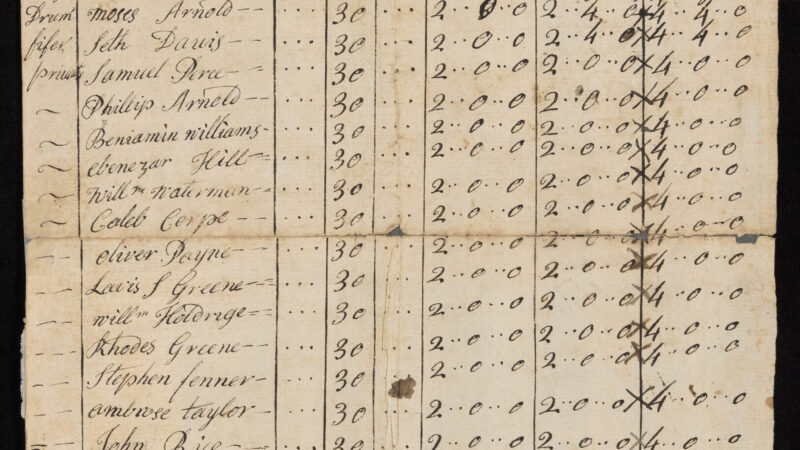 Drum moses Arnold -- ... 30 2..0..0 2..4..0 4..4..0
fifer Seth Davis -- ... 30 2..0..0 2..4..0 4..4..0
privats Samuel Perce -- ... 30 2..0..0 2..0..0 4..0..0
~ Phillip Arnold -- ... 30 2..0..0 2..0..0 4..0..0
~ Beniamin williams - ... 30 2..0..0 2..0..0 4..0..0
~ ebenezar Hill -- ... 30 2..0..0 2..0..0 4..0..0
~ willm waterman -- ... 30 2..0..0 2..0..0 4..0..0
~ Caleb Corpe -- ... 30 2..0..0 2..0..0 4..0..0
-- oliver Payne -- ... 30 2..0..0 2..0..0 4..0..0
-- S Greene -- ... 30 2..0..0 2..0..0 4..0..0
-- willm Holdrige -- ... 30 2..0..0 2..0..0 4..0..0
-- Rhodes Greene -- ... 30 2..0..0 2..0..0 4..0..0
-- Stephen fenner - ... 30 2..0..0 2..0..0 4..0..0
-- ambrose taylor - ... 30 2..0..0 2..0..0 4..0..0
-- John Rice -- ... 30 2..0..0 2..0..0 4..0..0